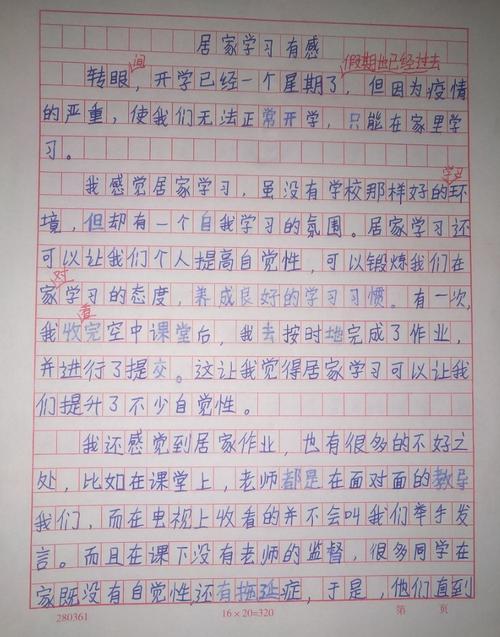 居家学习有感
间
假期也已经过去
转眼，开学已经一个星期了，但因为疫情
的严重，使我们无法正常开学，只能在家里学
习。
学习
我感觉居家学习，虽没有学校那样好的环
境，但却有一个自我学习的氛围。居家学习还
可以让我们个人提高自觉性，可以锻炼我们在
对
家学习的态度，养成良好的学习习惯。有一次，
看
我收完空中课堂后，我去按时地完成了作业，
并进行了提交。这让我觉得居家学习可以让我
们提升了不少自觉性。
我还感觉到居家作业，也有很多的不好之
处，比如在课堂上，老师都是在面对面的教导
我们，而在电视上收看的并不会叫我们举手发
言。而且在课下没有老师的监督，很多同学在
家既没有自觉性，还有拖延症，于是，他们直到
280361
16×20=320
第 页